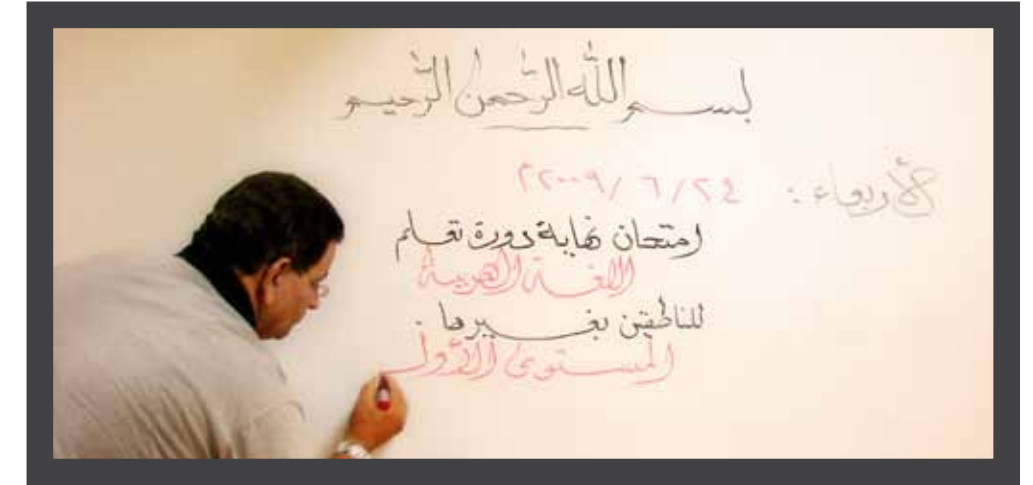 بسم الله الرّحمن الرّحيم
الأربعاء: ٢٤/٦/٢٠٠٩م
امتحان نهاية دورة تعلم
اللغة العربية
للناطقين بغيرها.
المستوى الأول